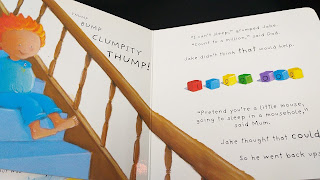 BUMP,
CLUMPITY
THUMP!
"I can't sleep," grumped Jake.
"Count to a million," said Dad.
Jake didn't think that would help.
"Pretend you're a little mouse,
going to sleep in a mousehole,"
said Mum.
Jake thought that could
So he went back up